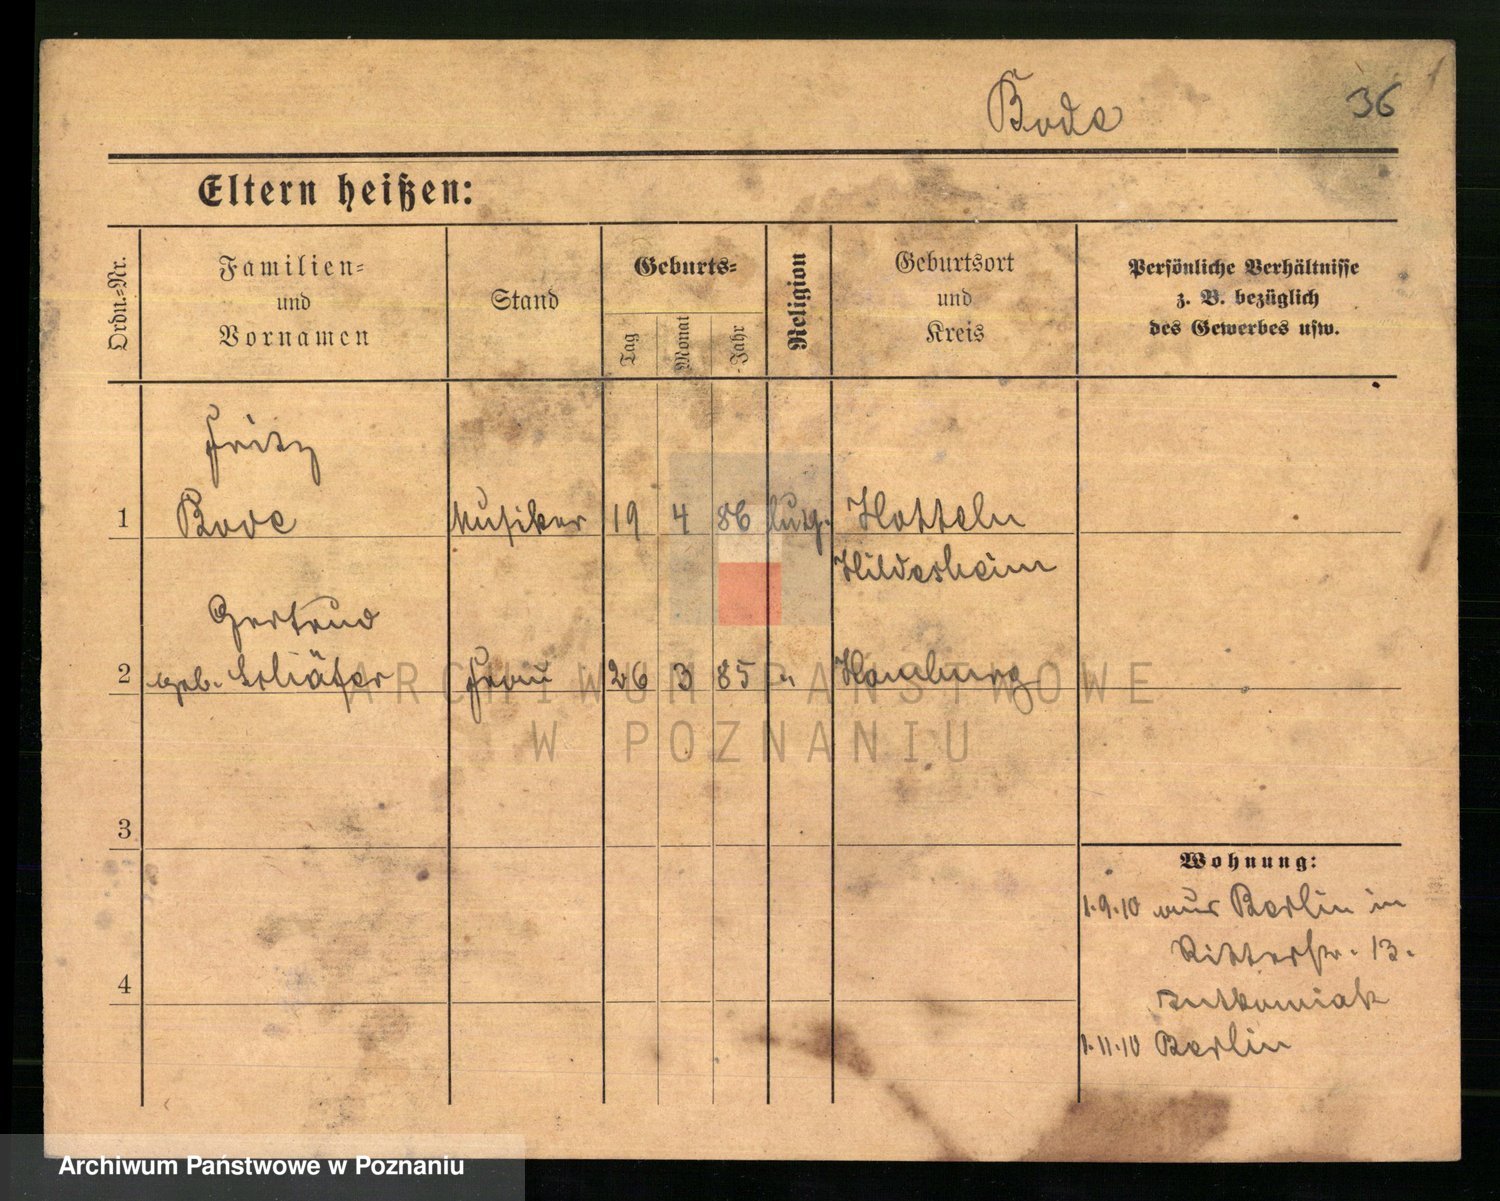 Bode
36
Eltern heißen:
Ordn.-Nr.
Familien-
und
Vornamen
Stand
Geburts-
Tag
Monat
Jahr
Religion
Geburtsort
und
Kreis
Persönliche Verhältnisse
z. B. bezüglich
des Gewerbes usw.
Fritz
1 Bode Musiker 19 4 86 luth. Hotteln
Hildesheim
Gertrud
2 geb. Schäfer Frau 26 3 85 " Hamburg
ARCHIWUM PAŃSTWOWE
W POZNANIU
3
Wohnung:
1.9.10 aus Berlin in
Ritterstr. 13.
4
1.11.10 Berlin
Archiwum Państwowe w Poznaniu